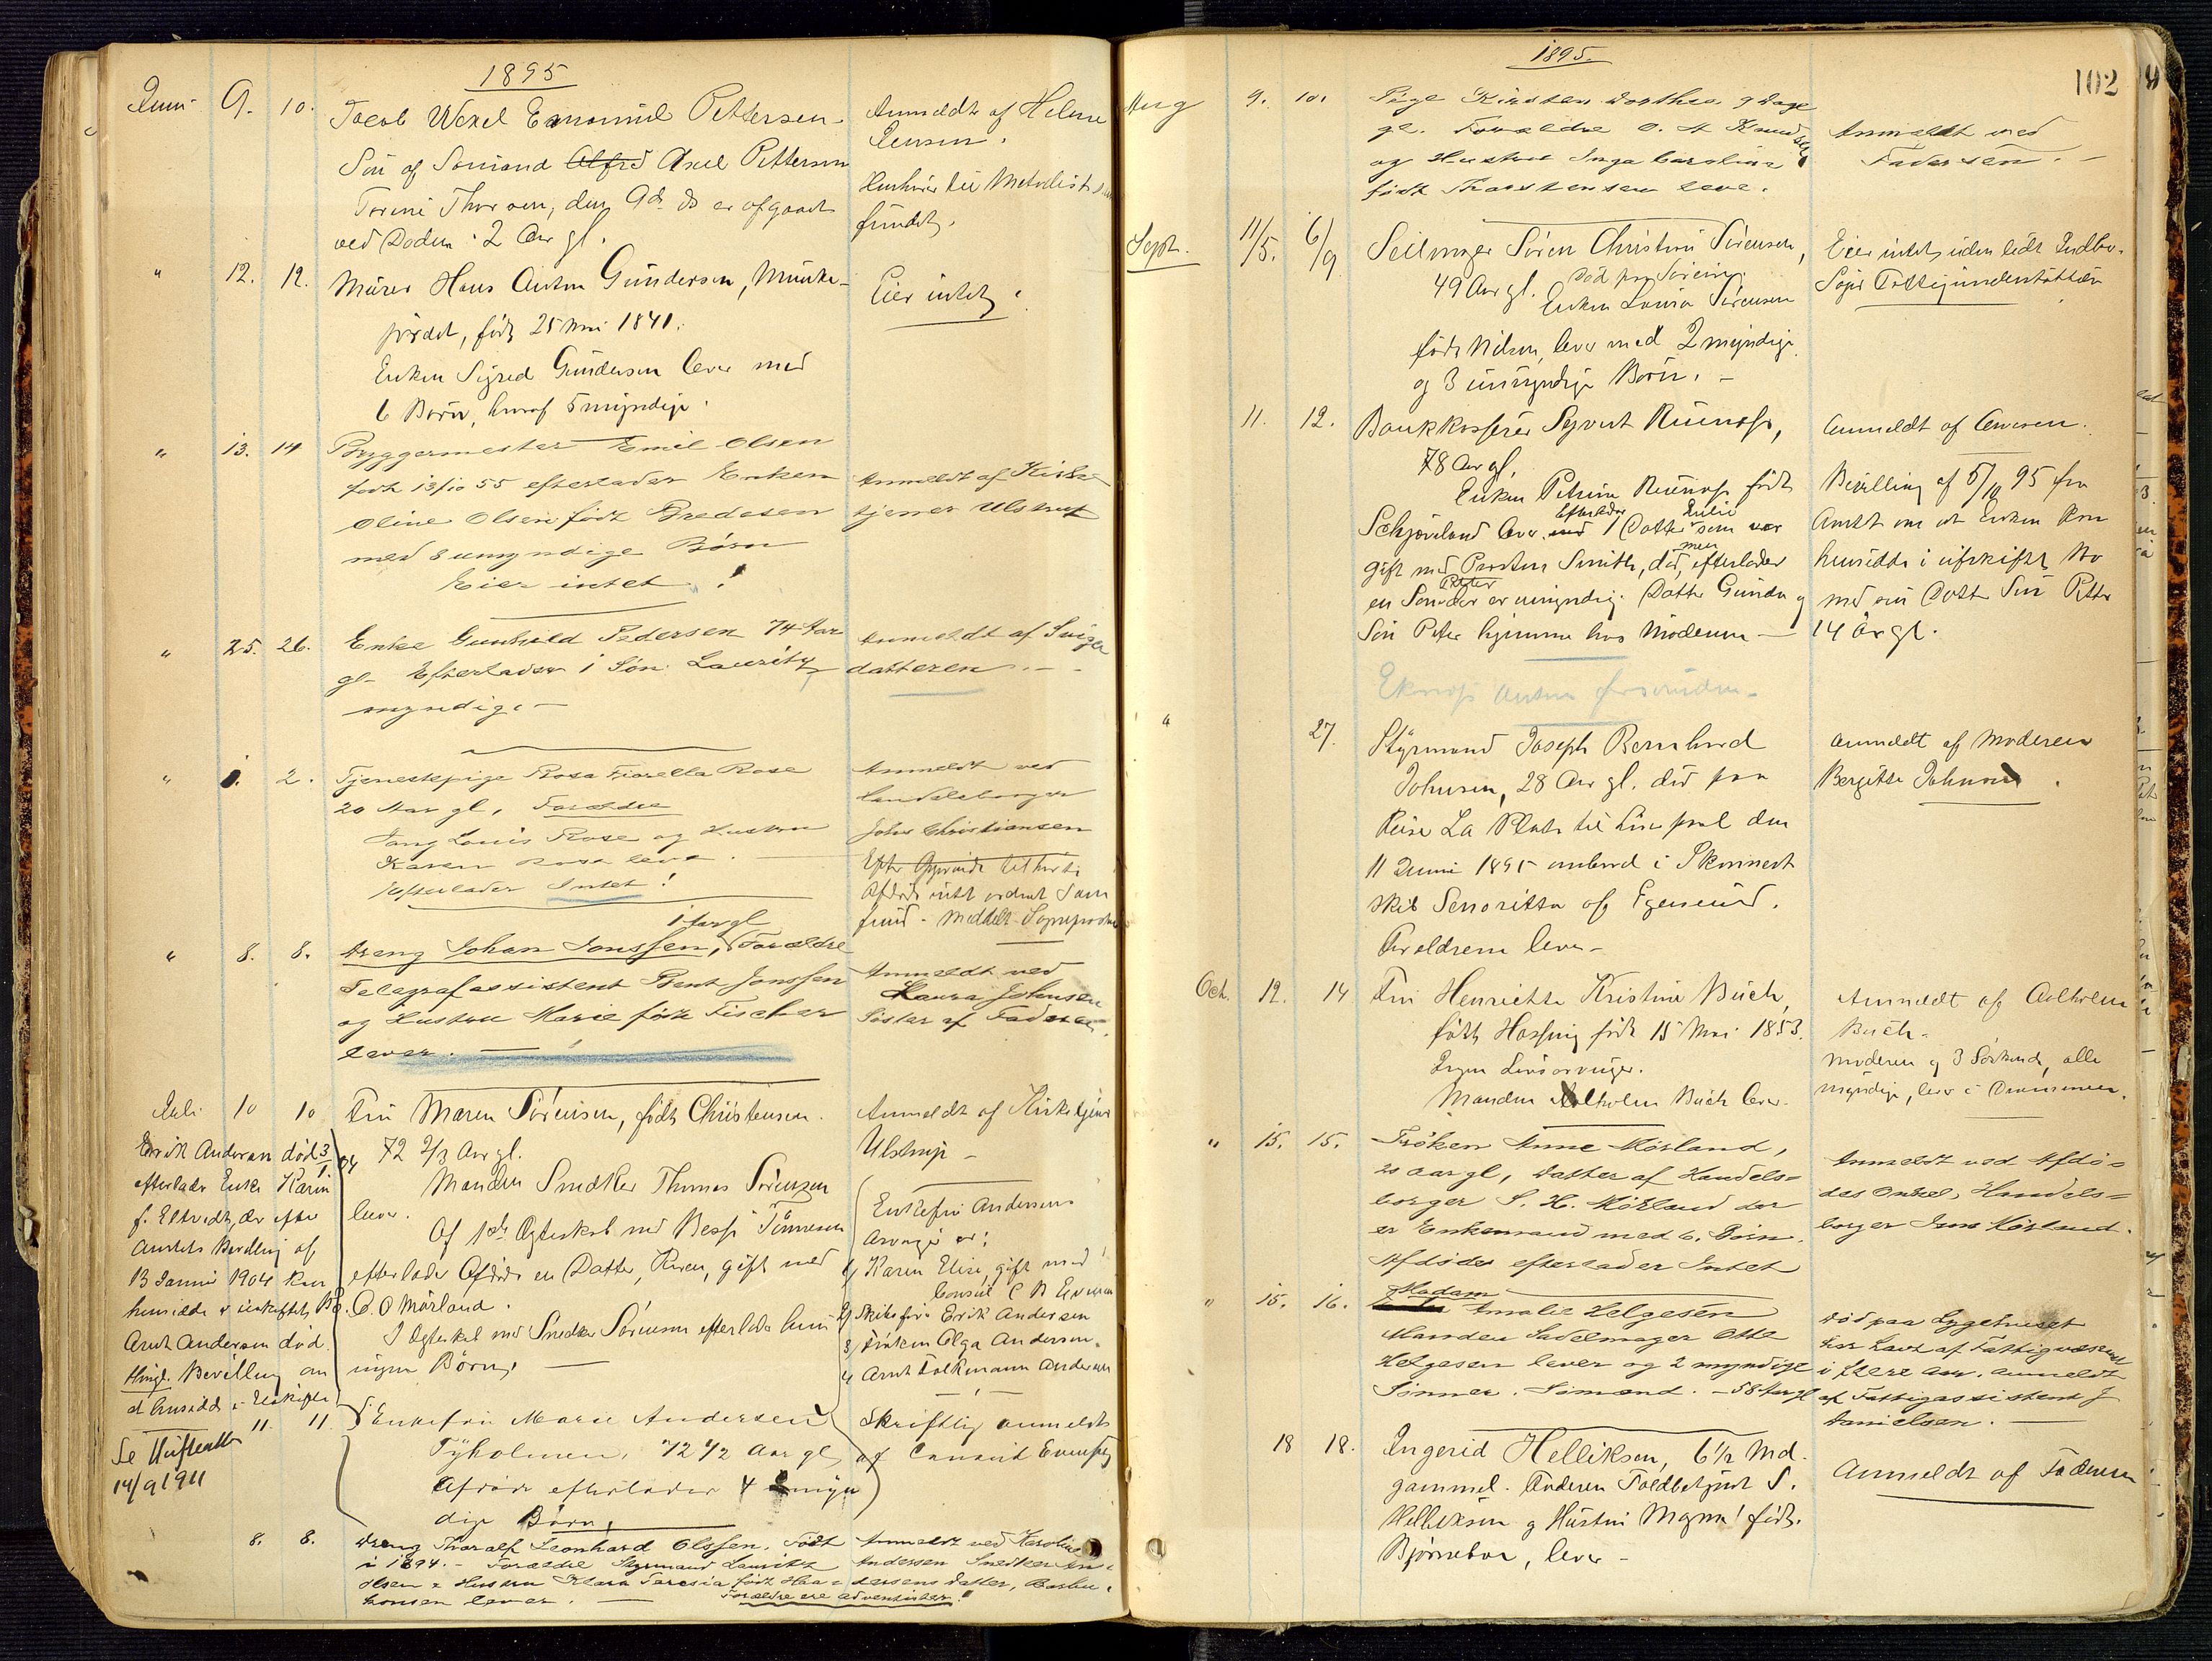 1895
Juni 9. 10. Jacob Wexel Emanuel Pettersen
Søn af Sømand Alfred Axel Pettersen
Torine Thorsen, den 9de ds er afgaaet
ved Døden. 2 Aar gl.
Anmeldt af Helene
Jensen.
Henhører til Methodist
fundet.
" 12. 12. Murer Hans Anton Gundersen, Munke-
jordet, født 25 Mai 1841.
Enken Sigred Gundersen lever med
6 Børn, hvoraf 5 myndige.
Eier intet.
" 13. 14 Byggermester Emil Olsen
født 13/10 55 efterlader Enken
Oline Olsen født
med 8 umyndige Børn
Eier intet!
Anmeldt af Kirke-
tjener Ulstrup
" 25. 26. Enke Gunhild Pedersen 74 Aar
gl- Efterlader 1 Søn Lauritz
myndig. -
Anmeldt af Sviger
datteren. -
" 1. 2. Tjenestepige Rosa Fiorella Rose
20 Aar gl, Forældre
Louis Rose og Hustru
Karen Rose leve.
Efterlader Intet!
Anmeldt ved
Handelsborger
John Christiansen
Efter
Afdøde intet ordnet Sam
fund. - Meddelt
1 Aar gl
" 8. 8. Dreng Johan Jonssen, Forældre
Telegrafassistent Bent Jonssen
og Hustru Marie født Fischer
lever. -
Anmeldt ved
Laura Johnsen
Søster af Faderen.
Juli 10 10 Fru Maren Sørensen, født Christensen.
72 2/3 Aar gl.
Manden Snedker Thomas Sørensen
lever.
Af 1ste Ægteskab med Tønnesen
efterlader Afdøde en Datter, Karen, gift med
C. O Mørland.
I Ægteskab med Snedker Sørensen efterlader hun
ingen Børn. -
Anmeldt af Kirketjener
Ulstrup -
Erik Andersen død 3/1 04
efterlader Enke Karin
f. Eltvedt, der efter
Amtets Bevilling af
13 Januar 1904 kan
hensidde i uskiftet Bo.
Arnt Andersen død.
Thingl. Bevilling om
at hensidde i Uskifte
Se
14/9 1911
Enkefru Andersens
Arvinger er:
1/ Karen Elise, gift med
Consul C B Evensen
2/ Skibsfører Erik Andersen
3/ Frøken Olga Andersen
4 Arnt Folkmann Andersen
11. 11. Enkefru Marie Andersen
Tyholmen, 72 1/2 Aar gl
Afdøde efterlader 4 myn
dige Børn.
Skriftlig anmeldt
af Consul Evensen
8. 8. Dreng Thoralf Leonhard Olsen. Født
i 1894. - Forældre Styrmand Lauritz
Olsen & Hustru Klara Teresia født Haa=
konsen lever. - Forældre ere Adventister!
Anmeldt ved Karoline
Andersen Snedker An-
dersens Datter,
1895.
102
Aug 9. 10. Pige Kirsten Dorthea 9 Dage
gl. Forældre O. A Knudsen
og Hustru Inga Caroline
født Thorstensen leve.
Anmeldt ved
Faderen. -
Sept. 11/5. 6/9 Seilmager Søren Christian Sørensen,
49 Aar gl. Død paa
Enken Lovisa Sørensen
født Nilsen, lever med 2 myndige
og 3 umyndige Børn. -
Eier intet, uden lidt Indbo.
Søger Fattigunderstøttelse
11. 12. Bankkasserer Syvert
78 Aar gl.
Enken Petrine født
lever. Efterlader 1 Datter Julie som var
gift med Smith, død, men efterlader
en Søn Petter der er umyndig. Datter Gunda og
Søn Peter hjemme hos Moderen -
Anmeldt af
Bevilling af 5/10 95 fra
Amtet om at Enken kan
hensidde i uskiftet Bo
med sin Datter Søn Petter
14 Aar gl.
" 27. Styrmand Joseph Bernhard
Johnsen, 28 Aar gl. død paa
Reise La Plata til Liverpool den
11 Juni 1895 ombord i Skonnert
skib Senoritta af Egersund.
Forældrene lever -
Anmeldt af Moderen
Bergitte Johnsen.
Oct. 12. 14 Fru Henriette Kristine Buch,
født født 15 Mai 1853.
Ingen Livsarvinger.
Manden Adtholm Buch lever.
Anmeldt af
Buch.
Moderen og 3 Søskende, alle
myndige, lever i Drammen.
" 15. 15. Frøken Anne Mørland,
21 Aar gl, Datter af Handels=
borger S. H. Mørland der
er Enkemand med 6. Børn.
Afdøde efterlader Intet
Anmeldt ved Afdø=
des Onkel, Handels=
borger Jens Mørland.
" 15. 16. Madam Amalie Helgesen
Manden Sadelmager Otto
Helgesen lever og 2 myndige
Sønner. Sømænd. - 58 Aar gl
død paa Sygehuset
har Lavt af Fattigvæsenet
i flere Aar. Anmeldt
af Fattigassistent J
Danielsen. -
18 18. Ingerid Helliksen, 6 1/2 Md.
gammel. Faderen Toldbetjent S.
Helliksen og Hustru Magna født.
Bjørnebo, lever -
Anmeldt af Faderen